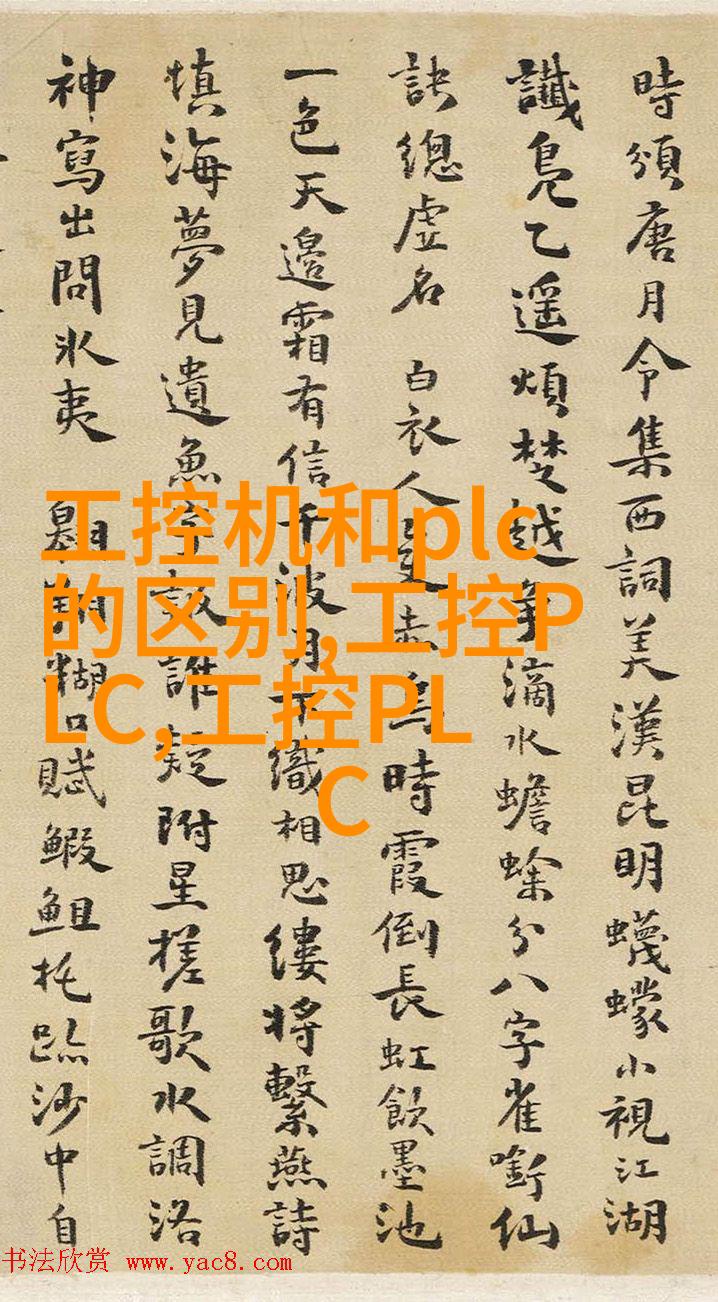 時頒唐月令集西詞美漢昆明蠛蠓小視江湖
讖鳧乙遥煩楚越爭滴水蟾蜍分八字雀銜仙
訣總虛名 白衣人烏時霞倒長虹飲墨池
一色天邊霜有信千波月織相思縷將繫燕詩
填海夢見遺魚字誰疑附星槎歌水調洛
神寫出問氷夷 糊口賦鰕䱉托跡沙中自
工控机和plc
的区别,工控P
LC,工控PL
C
书法欣赏 www.yac8.com